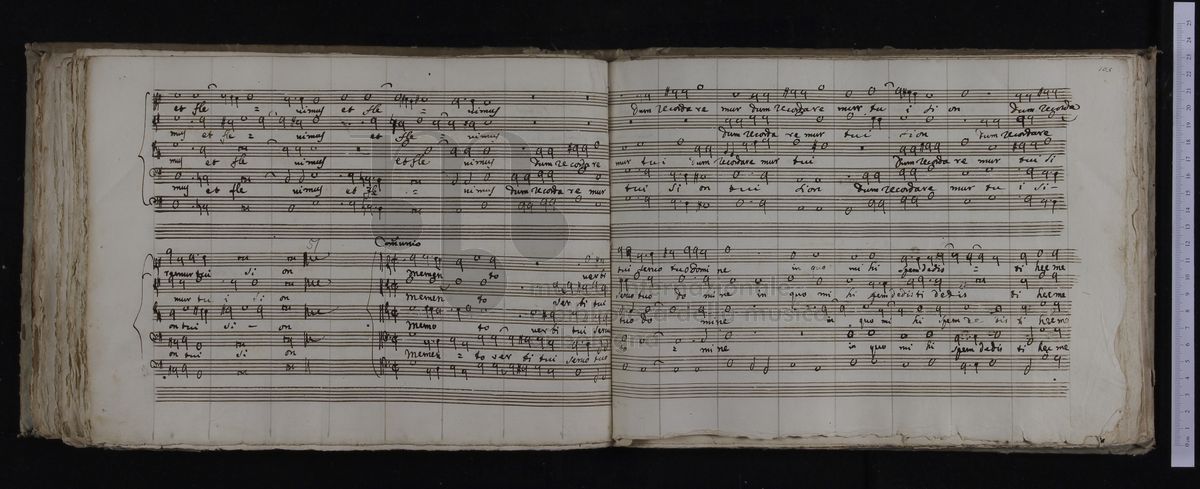 103
et fle = uimus et fle = uimus dum recordare mur dum recordare mur tu i sion dum recorda
mus et fle = uimus et fle = uimus dum recorda re mur tui sion dum recordare
mus et fle uimus et fle uimus dum recordare mur tui dum recordare mur tui dum recorda re mur tui si
mus et fle uimus et fle = uimus dum recorda re mur tui si on tui sion dum recordare mur tu i si-
Comunio
remur tui si on Memen to verbi tui seruo tuo domi ne in quo mi hi spem dedis = ti hec me
mur tu i si on Memen to ver bi tui seruo tuo do mi ne in quo mi hi spem dedisti dedis ti hec me
on tui si - on Memo to ver bi tui seruo tuo do mine in quo mi hi spem
on tui si on Memen = to ver bi tui seruo tuo = mi ne in quo mi hi spem dedis ti hec me